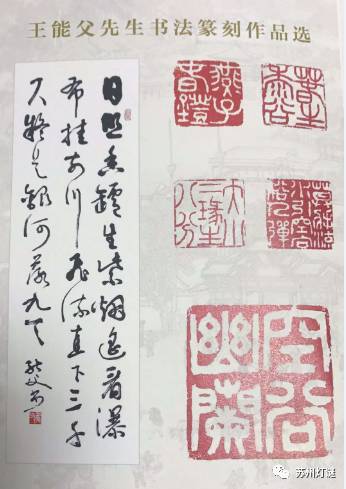 王能父先生书法篆刻作品选
日照香鑪生紫烟遥看瀑
布挂前川飞流直下三千
尺疑是银河落九天 能父
空谷幽蘭
苏州灯谜